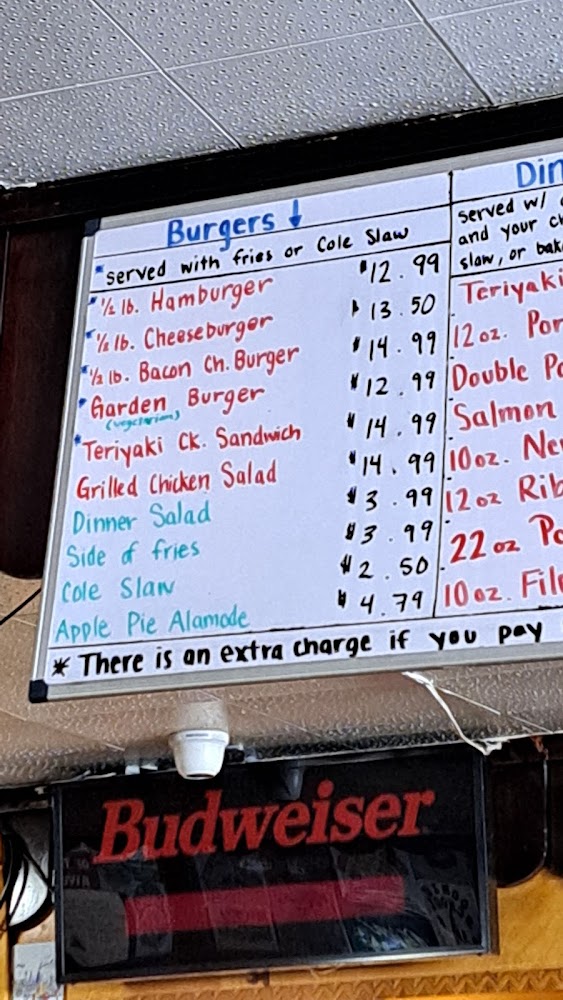 Burgers ↓
*served with fries or Cole Slaw
*½ lb. Hamburger $12.99
*½ lb. Cheeseburger $13.50
*½ lb. Bacon Ch. Burger $14.99
*Garden Burger $12.99
(vegetarian)
*Teriyaki Ck. Sandwich $14.99
Grilled Chicken Salad $14.99
Dinner Salad $3.99
Side of fries $3.99
Cole Slaw $2.50
Apple Pie Alamode $4.79
served w/
and your
slaw, or
Teriyaki
12 oz.
Double
Salmon
10 oz.
12 oz
22 oz
10 oz.
* There is an extra charge if you pay
Budweiser